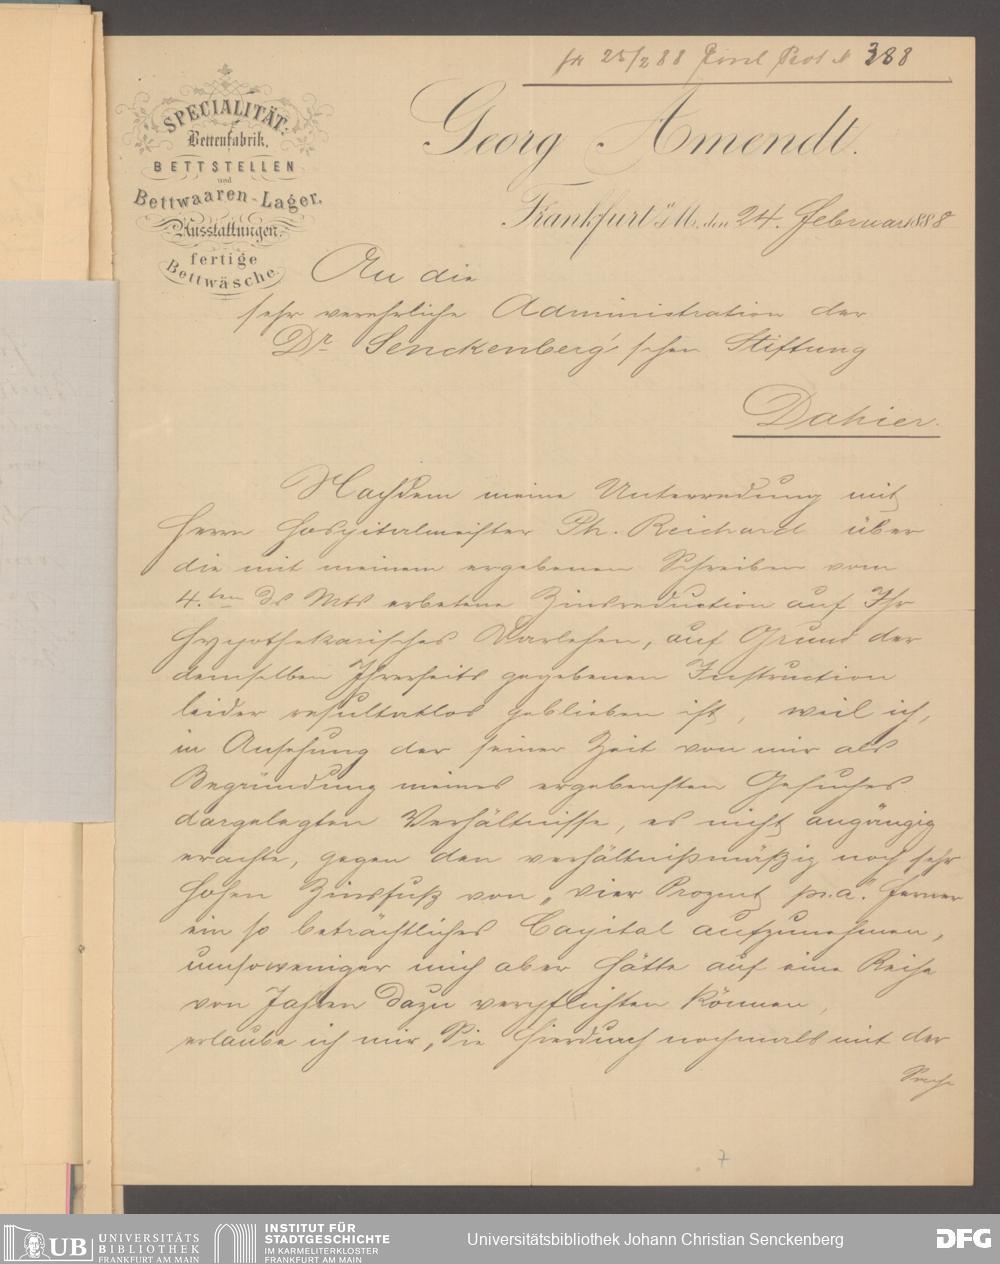 25/2 88 Prot. N 388
SPECIALITÄT:
Bettenfabrik,
BETTSTELLEN
und
Bettwaaren-Lager,
Ausstattungen,
fertige
Bettwäsche.
Georg Amendt.
Frankfurt a/M., den 24. Februar 1888
An die
sehr verehrliche Administration der
Dr Senckenberg'schen Stiftung
Dahier.
Nachdem meine Unterredung mit
Herrn Hospitalmeister Ph. Reichard über
die mit meinem ergebenen Schreiben vom
4.ten ds Mts erbetene Zinsreduction auf Ihr
hypothekarisches Darlehen, auf Grund der
demselben Ihrerseits gegebenen Instruction
leider resultatlos geblieben ist, weil ich,
in Ansehung der seiner Zeit von mir als
Begründung meines ergebensten Gesuches
dargelegten Verhältnisse, es nicht angängig
erachte, gegen den verhältnißmäßig noch sehr
hohen Zinsfuß von „vier Prozent pr.a." ferner
ein so beträchtliches Capital aufzunehmen,
umsoweniger mich aber hätte auf eine Reihe
von Jahren dazu verpflichten können,
erlaube ich mir, Sie hierdurch nochmals mit der
7
UB UNIVERSITÄTS
BIBLIOTHEK
FRANKFURT AM MAIN
INSTITUT FÜR
STADTGESCHICHTE
IM KARMELITERKLOSTER
FRANKFURT AM MAIN
Universitätsbibliothek Johann Christian Senckenberg
DFG